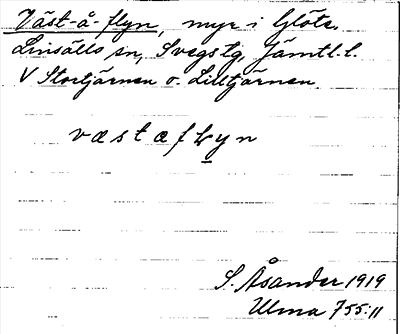 Väst-å-flyn, myr i Glöte,
Linsälls sn, Svegs tg, Jämtl. l.
V Stortjärnen o. Lilltjärnen.
væstæflyn
S. Åsander 1919
Ulma 755:11